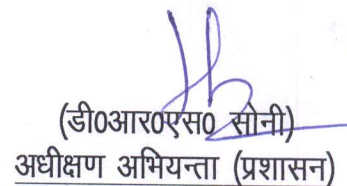 (डी0आर0एस0 सोनी)
अधीक्षण अभियन्ता (प्रशासन)